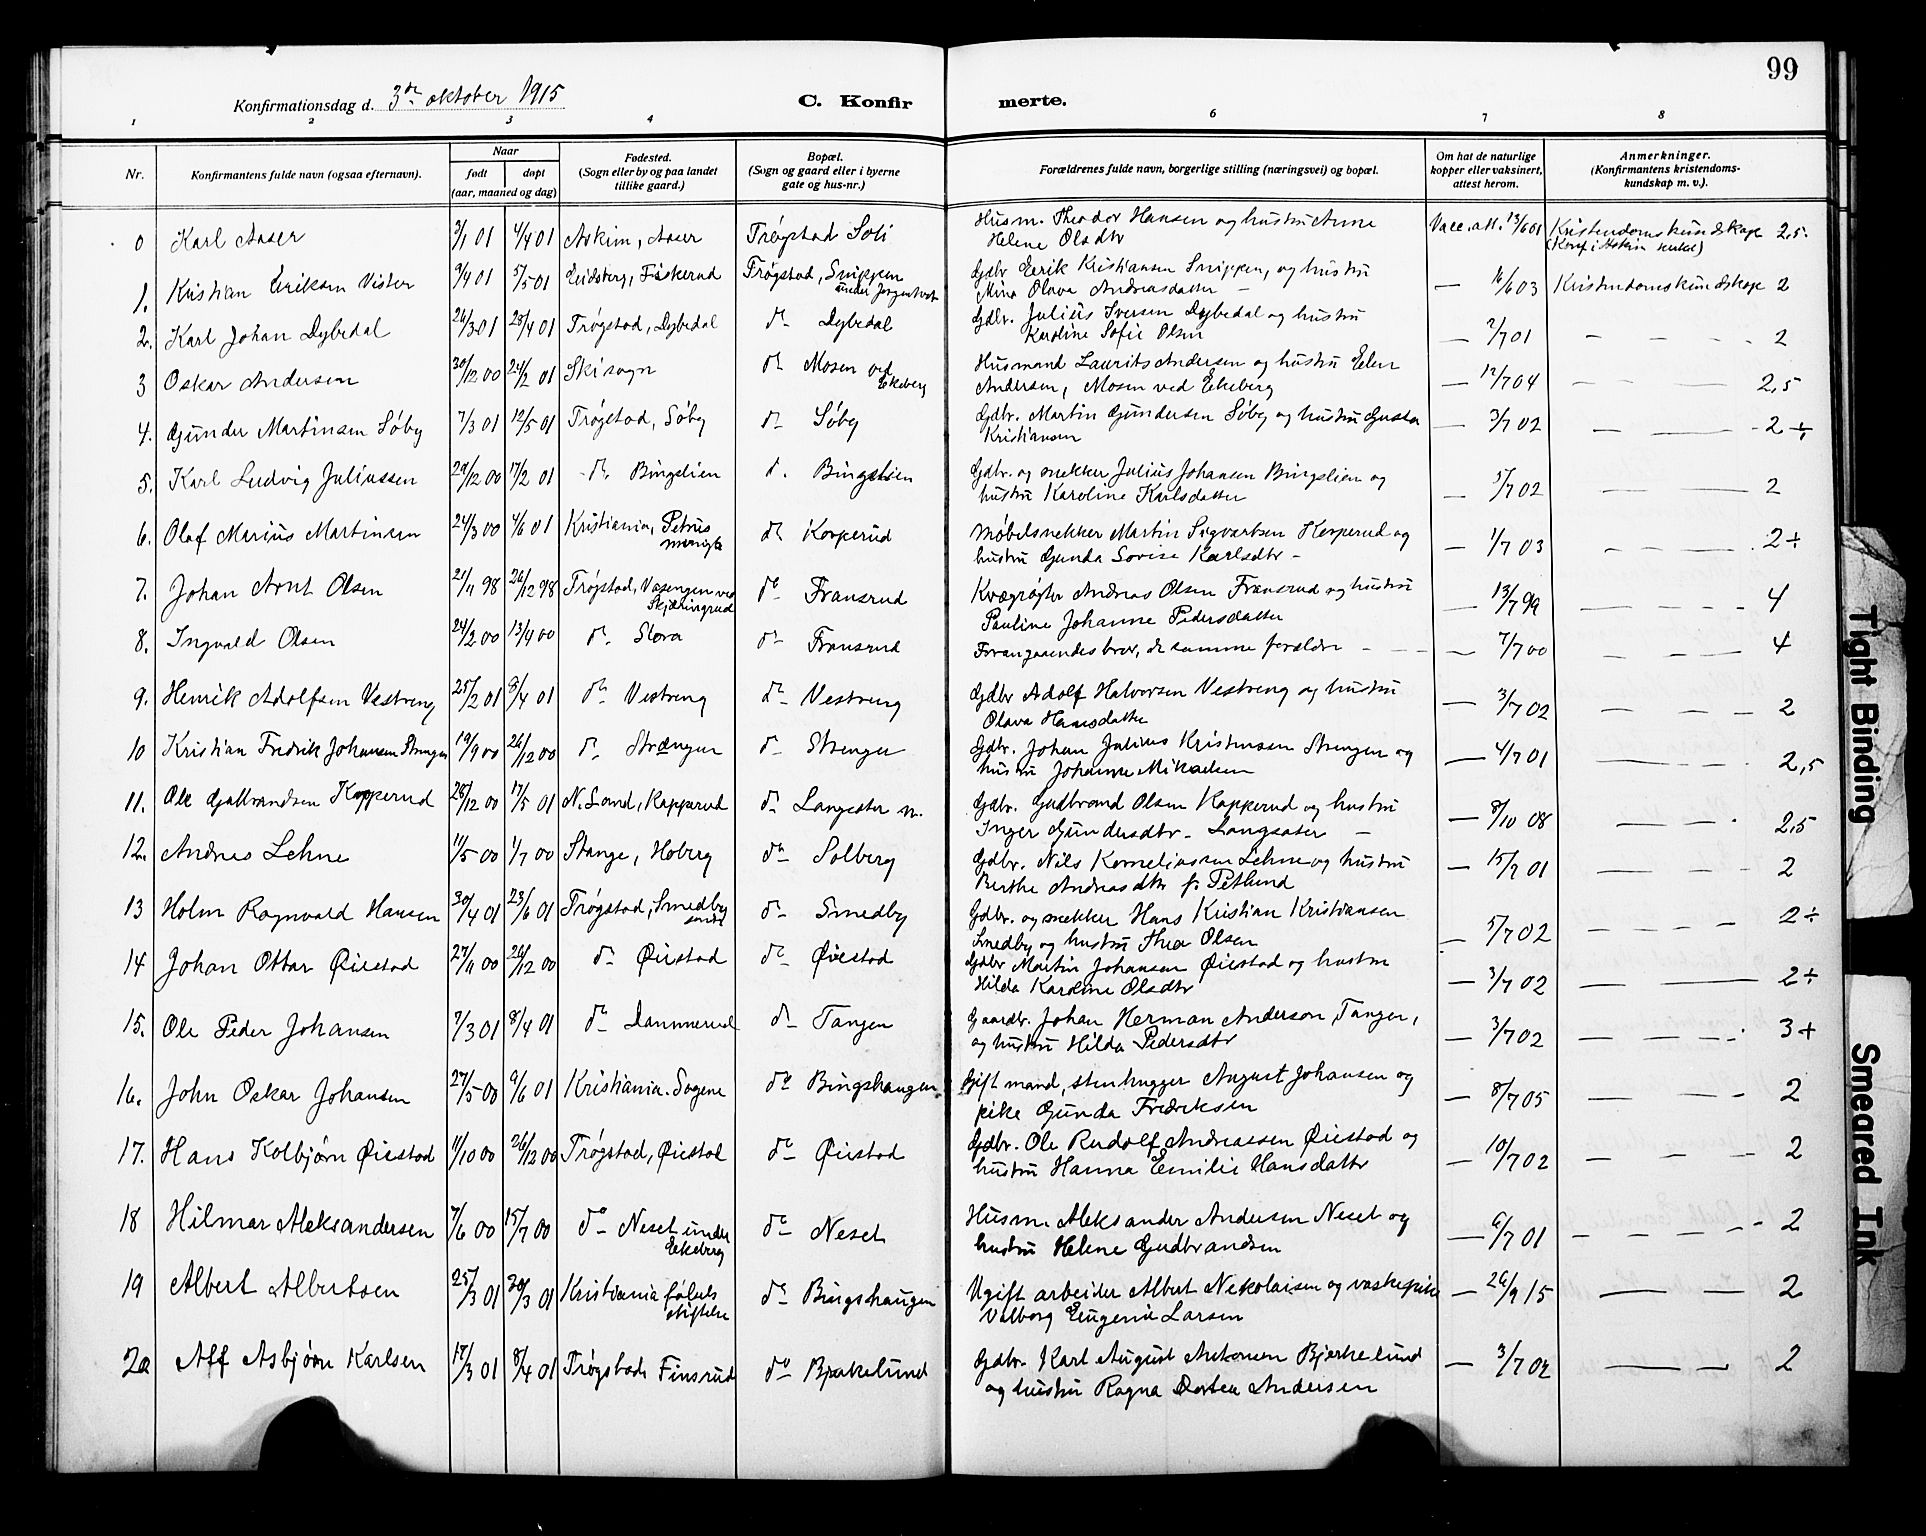 99
Konfirmationsdag d. 3de oktober 1915 C. Konfirmerte.
1 2 3 4 5 6 7 8
Nr. Konfirmantens fulde navn (ogsaa efternavn). Naar født døpt (aar, maaned og dag) Fødested. (Sogn eller by og paa landet tillike gaard.) Bopæl. (Sogn og gaard eller i byerne gate og hus-nr.) Forældrenes fulde navn, borgerlige stilling (næringsvei) og bopæl. Om hat de naturlige kopper eller vaksinert, attest herom. Anmerkninger. (Konfirmantens kristendomskundskap m. v.).
0 Karl Aaser 3/1 01 4/4 01 Askim, Aaser Trøgstad Soli Husm. Theodor Hansen og hustru Anne Vacc. att. 13/6 01 Kristendomskundskap 2,5.
Helene Olsdtr (Konf i Askim)
1. Kristian Eriksen Vister 9/4 01 5/5 01 Eidsberg, Fiskerud Trøgstad, Snippen Gdbr Eerik Kristiansen Snippen, og hustru — 16/6 03 Kristendomskundskap 2
under Mina Olava Andreasdatter —
2. Karl Johan Dybedal 26/3 01 28/4 01 Trøgstad, Dybedal do Dybedal Gdbr. Julius Iversen Dybedal og hustru — 2/7 01 — — — 2
Karoline Sofie Olsen
3 Oskar Andersen 30/12 00 24/2 01 Ski sogn do Mosen ved Husmand Laurits Andersen og hustru Elen — 12/7 04 — — — 2,5
Ekeberg Andersen, Mosen ved Ekeberg
4. Gunder Martinsen Søby 7/3 01 12/5 01 Trøgstad, Søby do Søby Gdbr. Martin Gundersen Søby og hustru Gusta — 3/7 02 — — 2 ÷
Kristiansen
5. Karl Ludvig Juliussen 29/12 00 17/2 01 do Bingslien do Bingslien Gdbr. og snekker Julius Johansen Bingslien og — 5/7 02 — — 2
hustru Karoline Karlsdatter
6. Olaf Marius Martinsen 24/3 00 4/6 01 Kristiania, Petrus do Korperud Møbelsnekker Martin Sigvartsen Korperud og — 1/7 03 — — 2÷
menigh hustru Gunda Lovise Karlsdtr —
7. Johan Arnt Olsen 21/11 98 26/12 98 Trøgstad, Vasengen ved do Fransrud Kvægrøgter Andreas Olsen Fransrud og hustru — 13/7 99 — — — 4
Skjæringrud Pauline Johanne Pedersdatter
8. Ingvald Olsen 24/2 00 13/4 00 do Stora do Fransrud Forangaaendes bror, de samme forældre — — 7/7 00 — — — 4
9. Henrik Adolfsen Vestreng 25/2 01 8/4 01 do Vestreng do Vestreng Gdbr Adolf Halvorsen Vestreng og hustru — 3/7 02 — — — 2
Olava Hansdatter
10 Kristian Fredrik Johansen Strenger 19/9 00 26/12 00 do Strænger do Strenger Gdbr. Johan Julius Kristensen Strenger og — 4/7 01 — — 2,5
hustru Johanne Mikaelsen
11. Ole Gulbrandsen Kopperud 28/12 00 17/5 01 N. Land, Kopperud do Langsæter n. Gdbr. Gudbrand Olsen Kopperud og hustru — 8/10 08 — — 2,5
Inger Gundersdtr. Langsæter —
12. Andreas Lehne 11/5 00 1/7 00 Stange, Hoberg do Solberg Gdbr. Nils Korneliussen Lehne og hustru — 15/7 01 — — — 2
Berthe Andreasdtr f. Petlund
13 Holm Ragnvald Hansen 30/4 01 23/6 01 Trøgstad, Smedby do Smedby Gdbr. og snekker Hans Kristian Kristiansen — 5/7 02 — — — 2÷
søndre Smedby og hustru Thea Olsen
14 Johan Ottar Øiestad 27/11 00 26/12 00 do Øiestad do Øiestad Gdbr Martin Johansen Øiestad og hustru — 3/7 02 — — 2÷
Hilda Karoline Olsdtr
15. Ole Peder Johansen 7/3 01 8/4 01 do Dammerud do Tangen Gaardbr. Johan Herman Anderson, Tangen, — 3/7 02 — — — 3+
og hustru Hilda Pedersdtr
16. John Oskar Johansen 27/5 00 9/6 01 Kristiania. Sagene do Bingshaugen Gift mand, stenhugger August Johansen og — 8/7 05 — — — 2
pike Gunda Fredriksen
17. Hans Kolbjørn Øiestad 11/10 00 26/12 00 Trøgstad, Øiestad do Øiestad Gdbr. Ole Rudolf Andreassen Øiestad og — 10/7 02 — — — 2
hustru Hanna Emilie Hansdatter
18 Hilmar Aleksandersen 7/6 00 15/7 00 do Neset under do Neset Husm. Aleksander Andersen Neset og — 6/7 01 — — — 2
Ekeberg hustru Helene Gudbrandsen
19 Albert Albertsen 25/3 01 30/3 01 Kristiania fødsels do Bingshaugen Ugift arbeider Albert Nekolaisen og vaskepike — 26/9 15 — — 2
stiftelse Valborg Eugenie Larsen
20 Alf Asbjørn Karlsen 17/3 01 8/4 01 Trøgstad, Finsrud do Bjerkelund Gdbr. Karl August Antonsen Bjerkelund — 3/7 02 — — 2
og hustru Ragna Dortea Andersen
Tight Binding
Smeared Ink